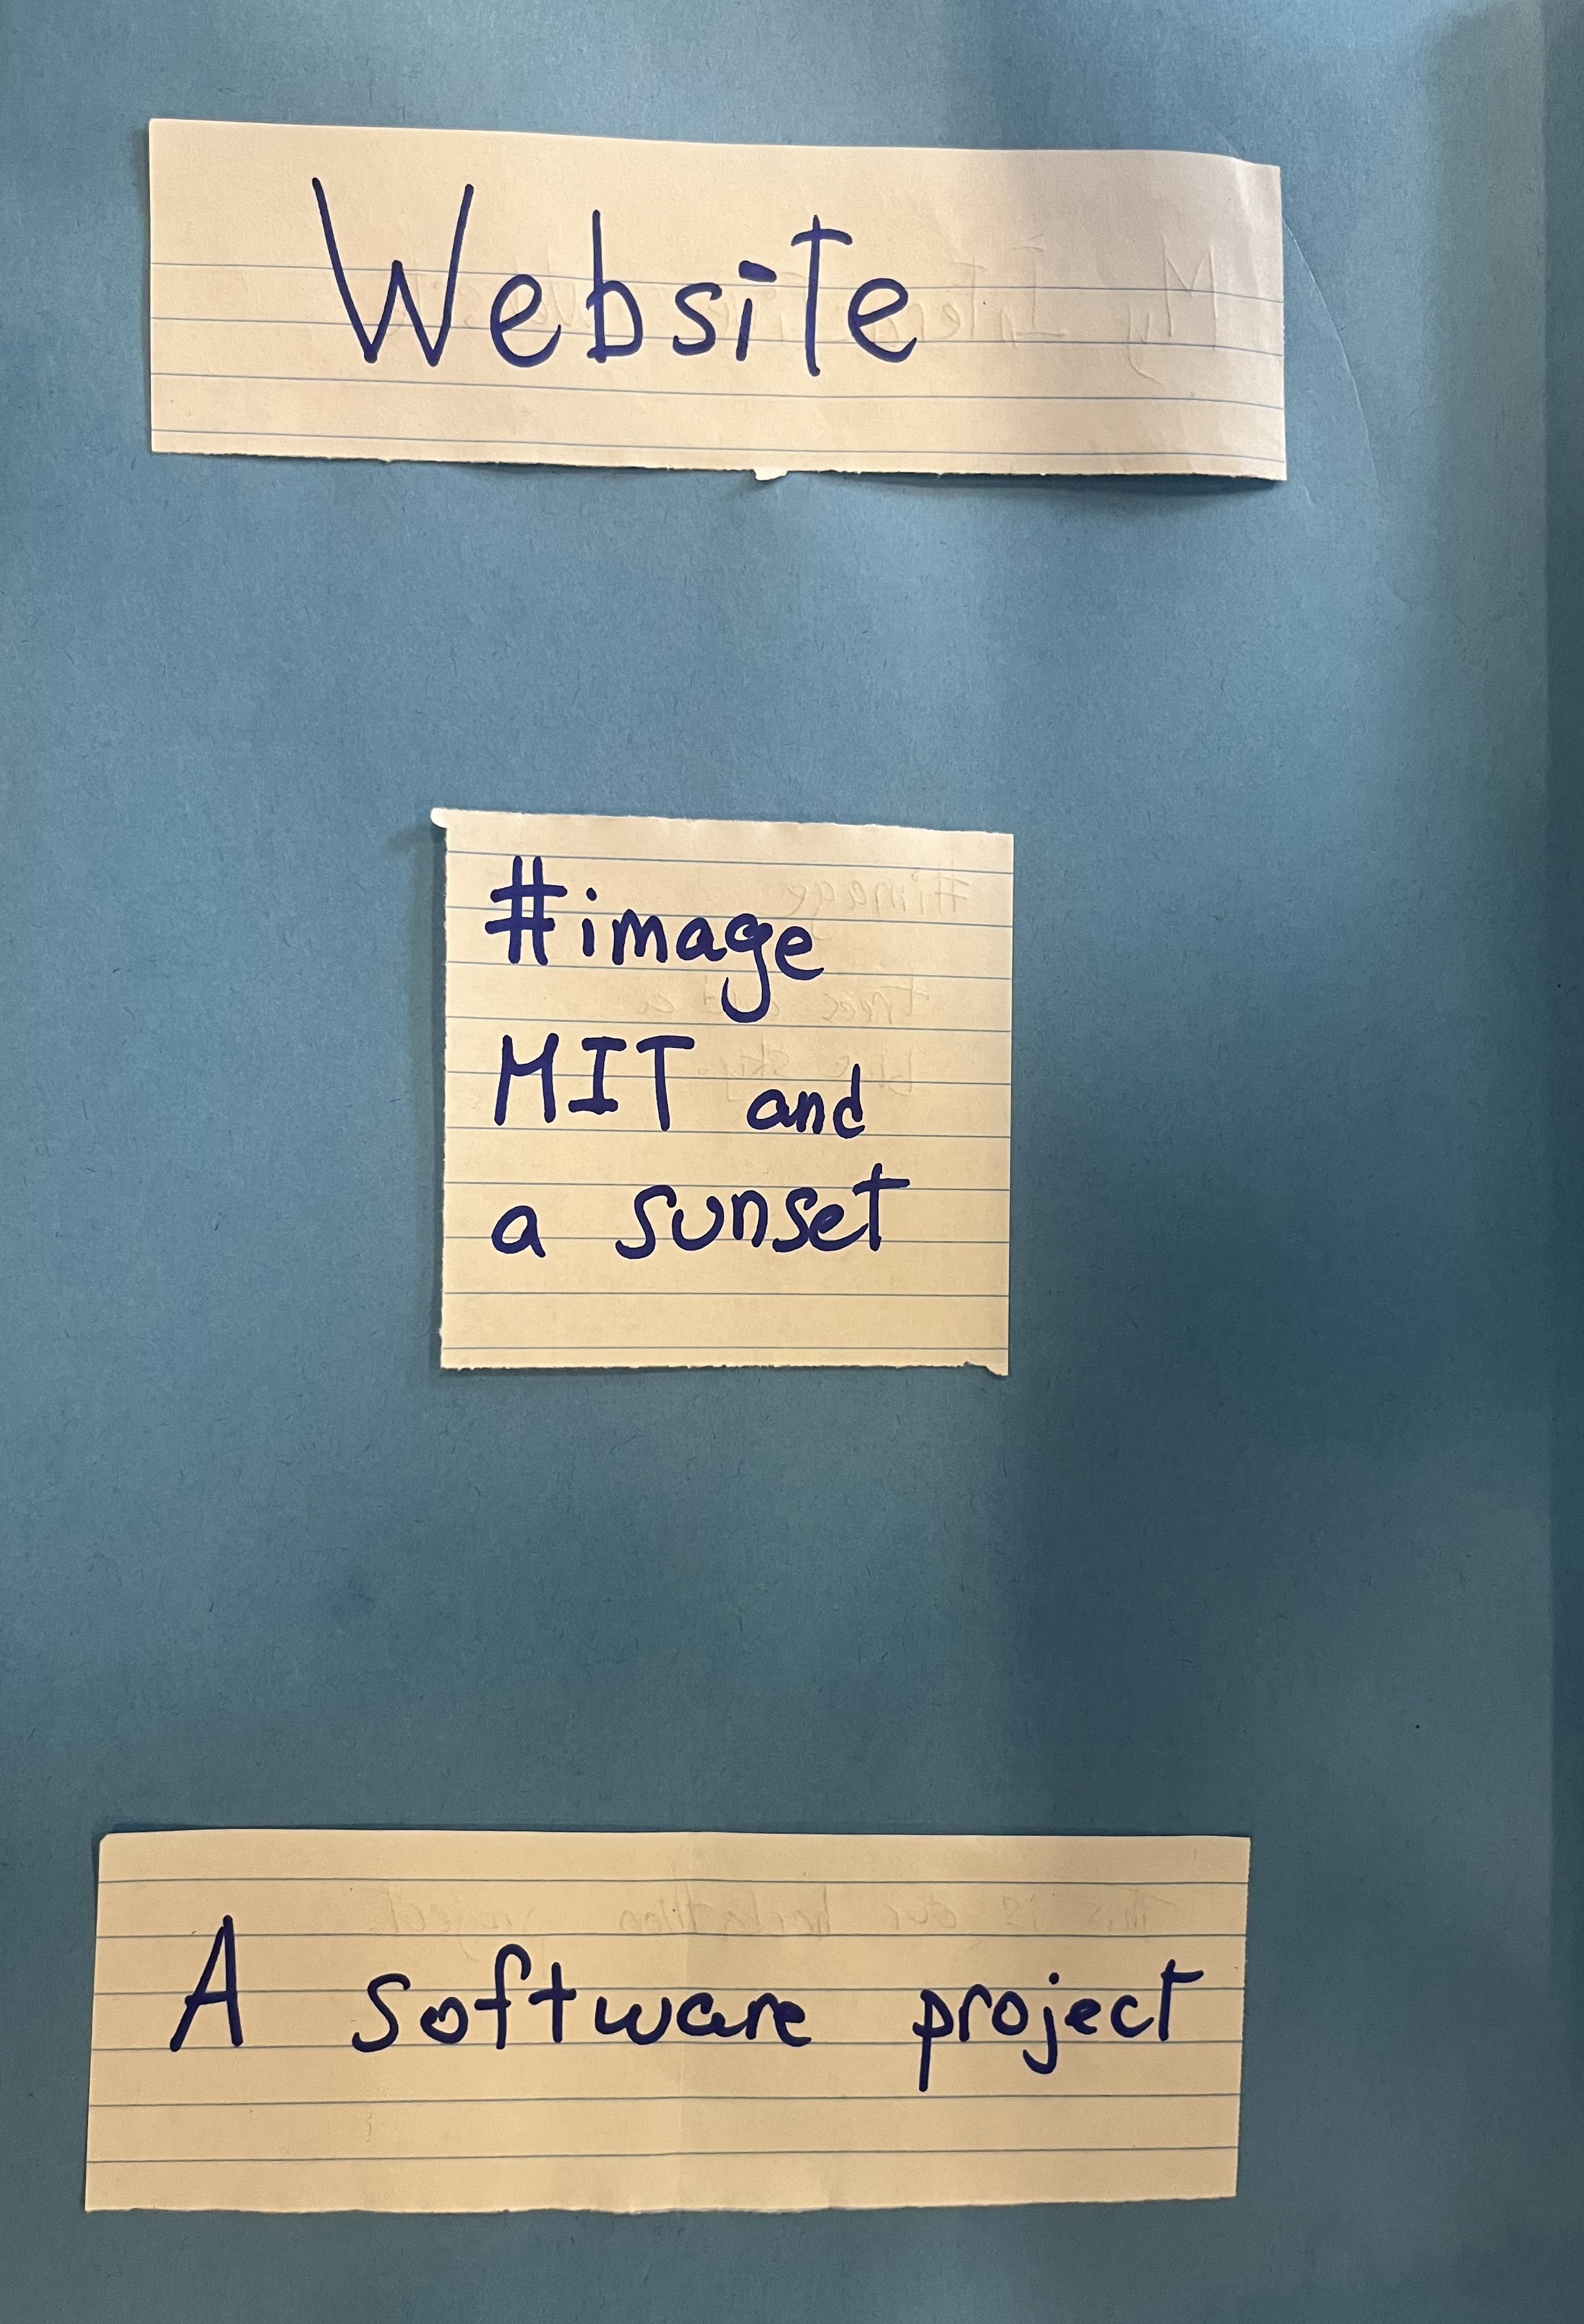 Website
#image
MIT and
a sunset
A software project